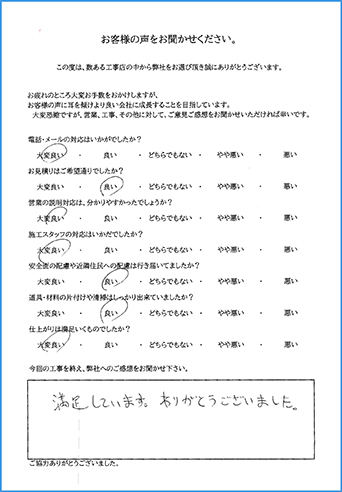 お客様の声をお聞かせください。
この度は、数ある工事店の中から弊社をお選び頂き誠にありがとうございます。
お疲れのところ大変お手数をおかけしますが、
お客様の声に耳を傾けより良い会社に成長することを目指しています。
大変恐縮ですが、営業、工事、その他に対して、ご意見ご感想をお聞かせいただければ幸いです。
電話・メールの対応はいかがでしたか？
大変良い ・ 良い ・ どちらでもない ・ やや悪い ・ 悪い
お見積りはご希望通りでしたか？
大変良い ・ 良い ・ どちらでもない ・ やや悪い ・ 悪い
営業の説明対応は、分かりやすかったでしょうか？
大変良い ・ 良い ・ どちらでもない ・ やや悪い ・ 悪い
施工スタッフの対応はいかだでしたか？
大変良い ・ 良い ・ どちらでもない ・ やや悪い ・ 悪い
安全面の配慮や近隣住民への配慮は行き届いてましたか？
大変良い ・ 良い ・ どちらでもない ・ やや悪い ・ 悪い
道具・材料の片付けや清掃はしっかり出来ていましたか？
大変良い ・ 良い ・ どちらでもない ・ やや悪い ・ 悪い
仕上がりは満足いくものでしたか？
大変良い ・ 良い ・ どちらでもない ・ やや悪い ・ 悪い
今回の工事を終え、弊社へのご感想をお聞かせ下さい。
満足しています。ありがとうございました。
ご協力ありがとうございました。